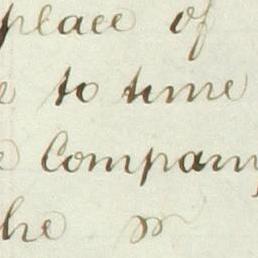 place of
e to time
e Company
he